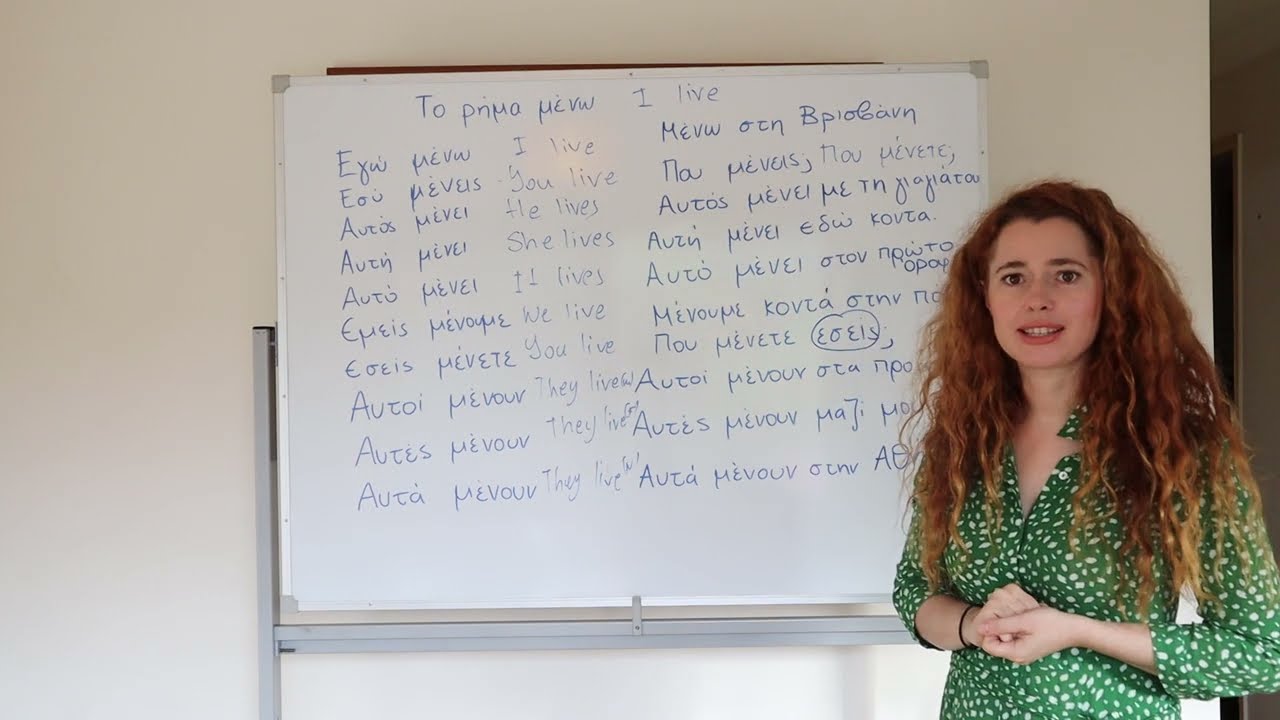 Το ρήμα μένω I live
Εγώ μένω I live
Εσύ μένεις You live
Αυτός μένει He lives
Αυτή μένει She lives
Αυτό μένει It lives
Εμείς μένουμε We live
Εσείς μένετε You live
Αυτοί μένουν They live
Αυτές μένουν They live
Αυτά μένουν They live
Μένω στη Βρισβάνη
Που μένεις; Που μένετε;
Αυτός μένει με τη γιαγιά του
Αυτή μένει εδώ κοντα.
Αυτό μένει στον πρώτο
Μένουμε κοντά στην
Που μένετε εσείς;
Αυτοί μένουν στα
Αυτές μένουν μαζί
Αυτά μένουν στην